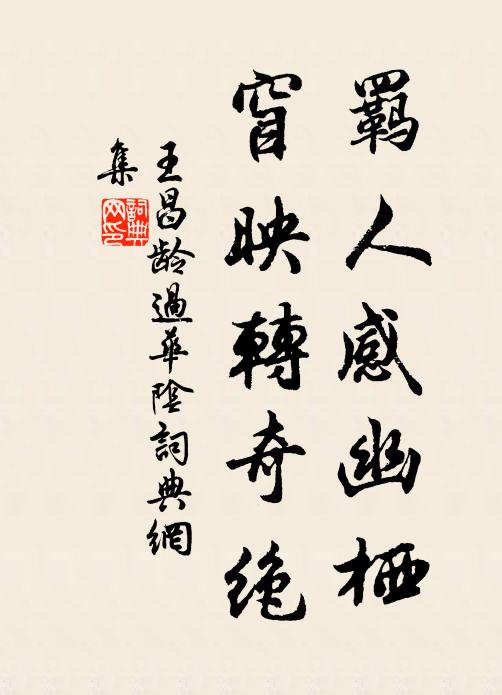 羈人感幽栖
窅映轉奇絶
王昌齡過華陰詞典網
集
詞典
网印